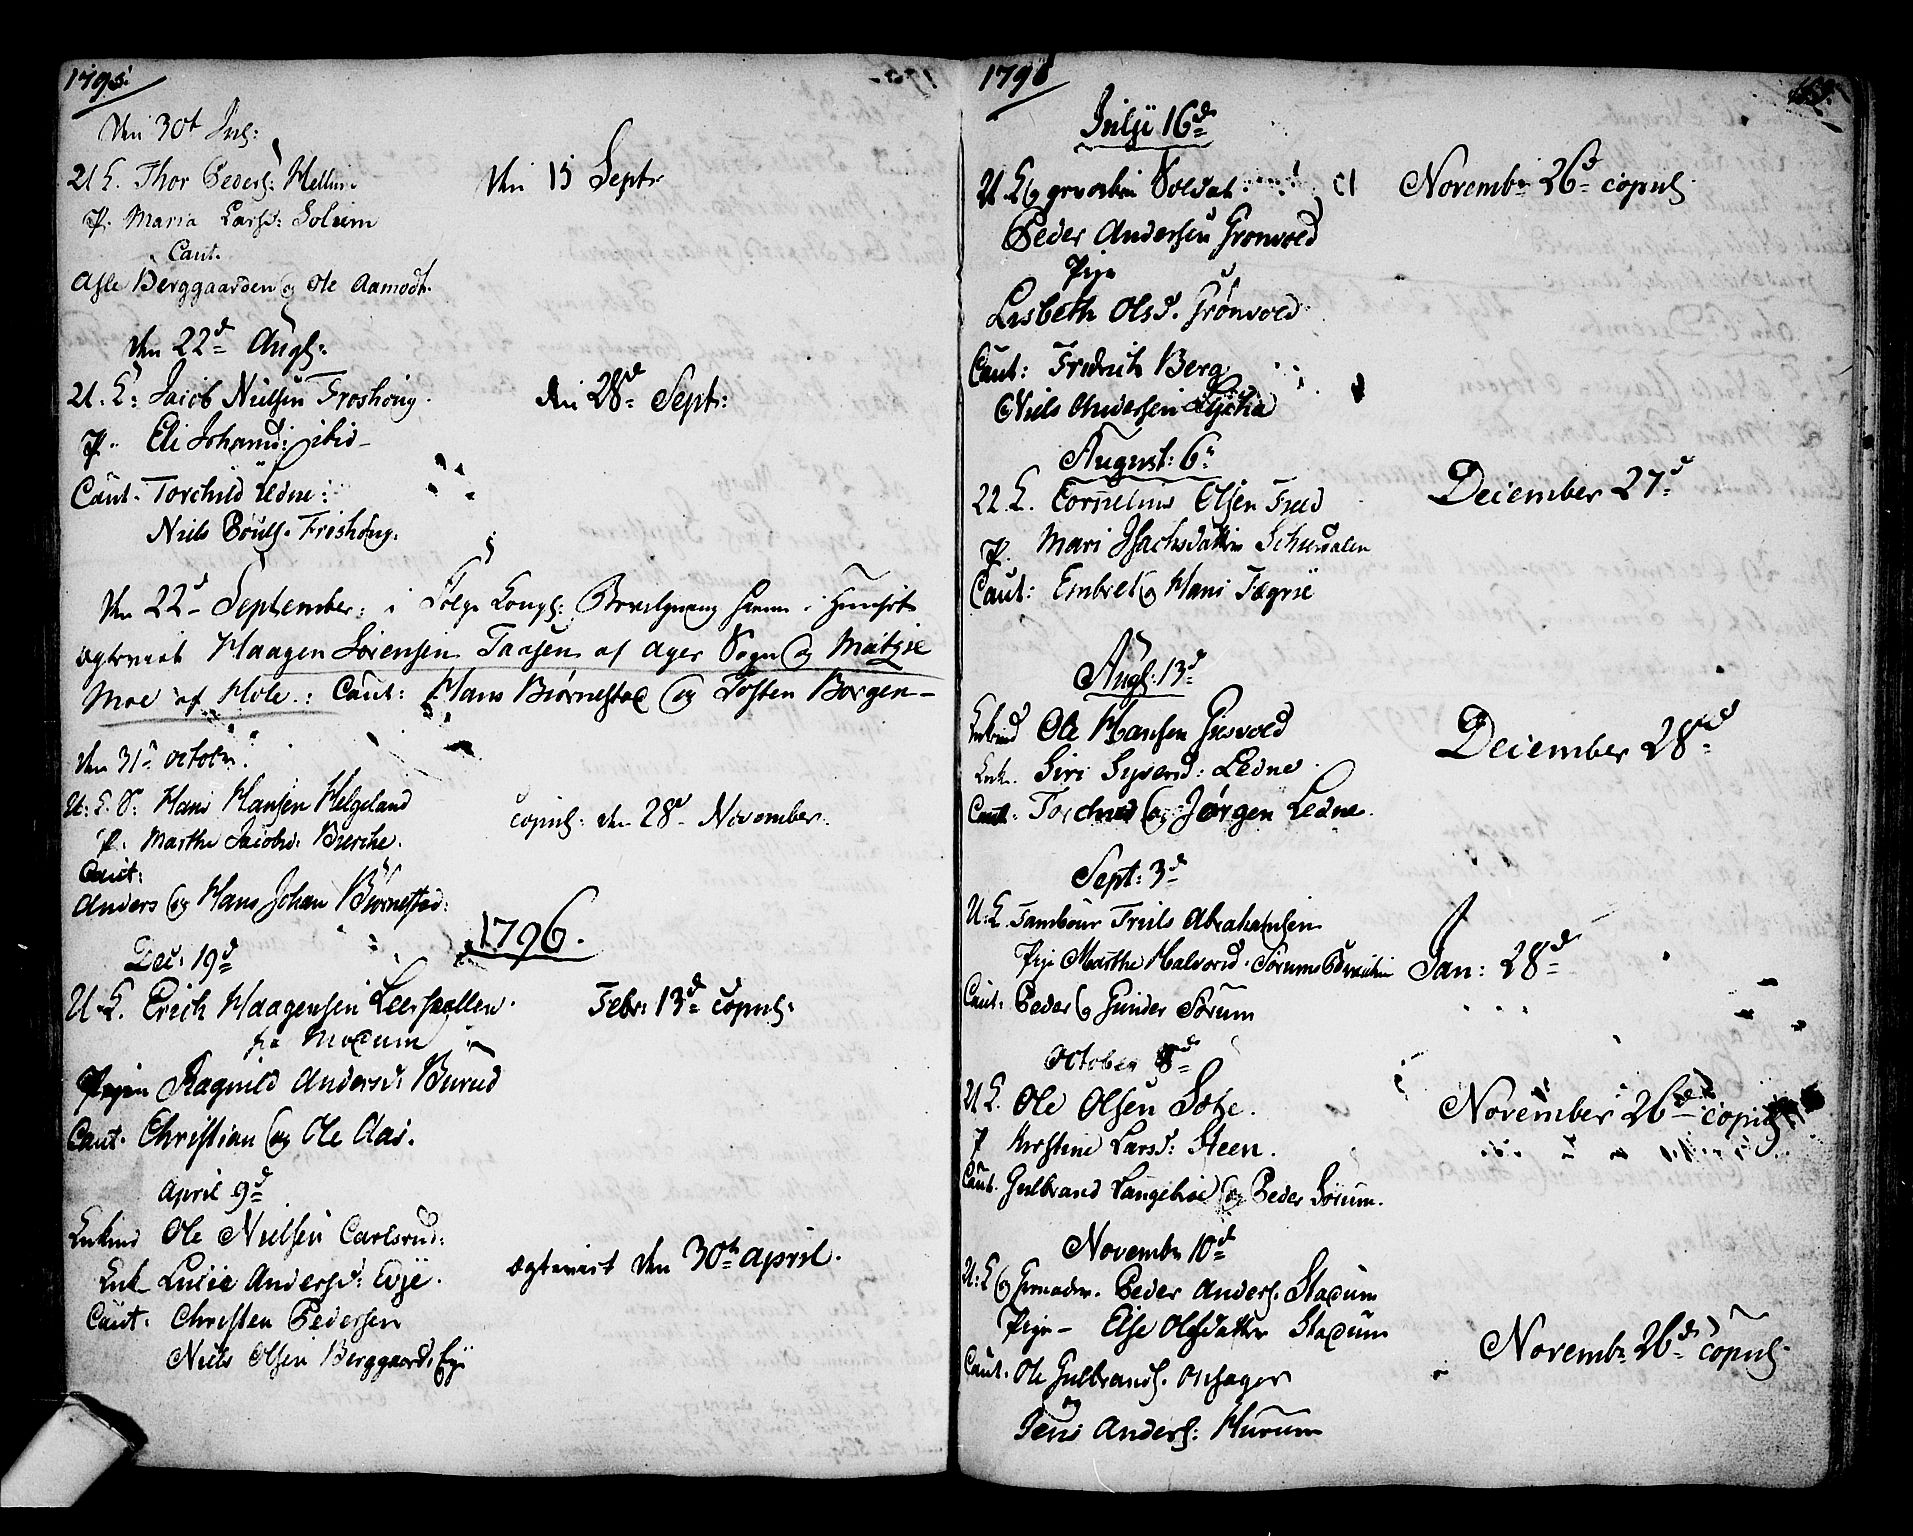 1795
Den 30t Jul:
U K. Thor Peders: Mellum
P. Maria Larsd: Solum
Caut.
Asle Berggaarden og Ole Aamodt.
Den 15 Septr
Den 22d Augs:
U. K: Jacob Nielsen Froshoug.
P. Eli Johansd: ibid
Caut. Torchild Ledne:
Niels Pouls. Froshoug.
den 28d Septr:
Den 22d September: i Følge Kongl: Bevilgning hiemme i Huuset
ægteviet Haagen Sørensen Taasen af Ager Sogn og Matzie
Moe af Hole.: Caut: Hans Biørnestad og Tosten Borgen
Den 31te octobr:
U: K. S: Hans Hansen Helgeland
P. Marthe Jacobsd: Bierche.
Caut:
Anders og Hans Johan Biørnestad:
copul: den 28d November.
1796.
Dec: 19d
U K. Erich Haagensen Leerskallen
fra Modum
Pigen Ragnild Andersd: Burud
Caut. Christian og Ole Aas.
Febr: 13d copul:
April 9d
Enkmd Ole Nielsen Carlsrud:
Enk Lucie Andersd: Evje.
Caut. Christen Pedersen
Niels Olsen Berggaard. Eye
ægteviet den 30te April.
1796
169.
Julji 16d
U K og gevorben Soldat
Peder Andersen Grønvold
Pige
Lisbeth Olsd. Grønvold
Caut: Fredrich Berg
Niels Andersen
Novembr 26d copul:
August: 6te
U K. Cornelius Olsen
P. Mari Isachsdatter
Caut: Embret og Hans Tægrie
December 27d
Augs: 13d
Enkemd Ole Hansen Giesvold
Enk. Siri Syversd: Ledne.
Caut. Torchild og Jørgen Ledne.
December 28d
Sept: 3d
U: K. Tambour Truls Abrahamsen
Pige Marthe Halvorsd. Sørums
Caut: Peder og Gunder Sørum
Jan: 28d
October 8d
U K. Ole Olsen
P Kirstine Larsd: Steen.
Caut. Gulbrand Langebroe og Peder Sørum.
November 26d copul
Novembr 10d
U: K og Grenader. Peder Anders. Stadum
Pige Else Olsdatter Stadum
Caut. Ole Gulbrands. Onsager
og
Jens Anders: Hurum
Novembr 26d copul: